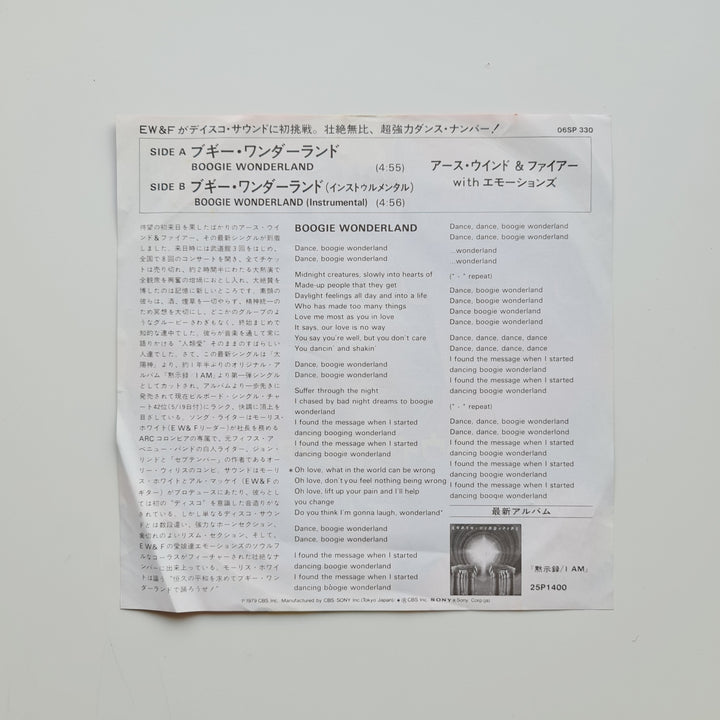 EW&Fがデイスコ・サウンドに初挑戦。壮絶無比、超強力ダンス・ナンバー!
06SP 330
SIDE A ブギー・ワンダーランド
BOOGIE WONDERLAND (4:55)
SIDE B ブギー・ワンダーランド(インストゥルメンタル)
BOOGIE WONDERLAND (Instrumental) (4:56)
アース・ウインド & ファイアー
with エモーションズ
待望の初来日を果したばかりのアース・ウイ
ンド&ファイアー、その最新シングルが到着
しました。来日時には武道館3回をはじめ、
全国で8回のコンサートを開き、全てチケッ
トは売り切れ、約2時間半にわたる大熱演で
全観衆を興奮の坩堝におとし入れ、大絶賛を
博したのは記憶に新しいところです。素顔の
彼らは、酒、煙草を一切やらず、精神統一の
ため冥想を大切にし、どこかのグループのよ
うなグルーピーさわぎもなく、終始まじめで
知的な連中でした。彼らが音楽を通して常に
語りかける“人類愛”そのままのすばらしい
人達でした。さて、この最新シングルは「太
陽神」より、約1年半ぶりのオリジナル・ア
ルバム「黙示録 I AM」より第一弾シングル
としてカットされ、アルバムより一歩先きに
発売されて現在ビルボード・シングル・チャ
ート42位(5/19日付)にランク、快調に頂上を
目ざしている。ソング・ライターはモーリス・
ホワイト(EW&Fリーダー)が社長を務める
ARCコロンビアの専属で、元フィフス・ア
ベニュー・バンドの白人ライター、ジョン・
リンドと「セプテンバー」の作者であるオー
リー・ウィリスのコンビ。サウンドはモーリ
ス・ホワイトとアル・マッケイ(EW&Fの
ギター)がプロデュースにあたり、彼らとし
ては初の“ディスコ”を意識した音造りがな
されている。しかし単なるディスコ・サウン
ドとは数段違い、強力なホーンセクション、
歯切れのよいリズム・セクション、そして、
EW&Fの愛娘達エモーションズのソウルフ
ルなコーラスがフィーチャーされた壮絶なナ
ンバーに出来上っている。モーリス・ホワイ
トは謳う“恒久の平和を求めてブギー・ワン
ダーランドで踊ろうぜ!”
BOOGIE WONDERLAND
Dance, boogie wonderland
Dance, boogie wonderland
Midnight creatures, slowly into hearts of
Made-up people that they get
Daylight feelings all day and into a life
Who has made too many things
Love me most as you in love
It says, our love is no way
You say you're well, but you don't care
You dancin' and shakin'
Dance, boogie wonderland
Dance, boogie wonderland
Suffer through the night
I chased by bad night dreams to boogie
wonderland
I found the message when I started
dancing booging wonderland
I found the message when I started
dancing boogie wonderland
*Oh love, what in the world can be wrong
Oh love, don't you feel nothing being wrong
Oh love, lift up your pain and I'll help
you change
Do you think I'm gonna laugh, wonderland*
Dance, boogie wonderland
Dance, boogie wonderland
I found the message when I started
dancing boogie wonderland
I found the message when I started
dancing boogie wonderland
Dance, dance, boogie wonderland
Dance, dance, boogie wonderland
...wonderland
...wonderland
(* - * repeat)
Dance, boogie wonderland
Dance, boogie wonderland
Dance, boogie wonderland
Dance, boogie wonderland
Dance, dance, dance, dance
Dance, dance, dance, dance
I found the message when I started
dancing boogie wonderland
I found the message when I started
dancing boogie wonderland
(* - * repeat)
Dance, dance, boogie wonderland
Dance, dance, boogie wonderland
I found the message when I started
dancing boogie wonderland
I found the message when I started
dancing boogie wonderland
I found the message when I started
dancing boogie wonderland
最新アルバム
「黙示録/I AM」
25P1400
℗1979 CBS Inc. Manufactured by CBS SONY Inc (Tokyo Japan) ● Ⓡ CBS Inc. SONY ● Sony Corp (ja)